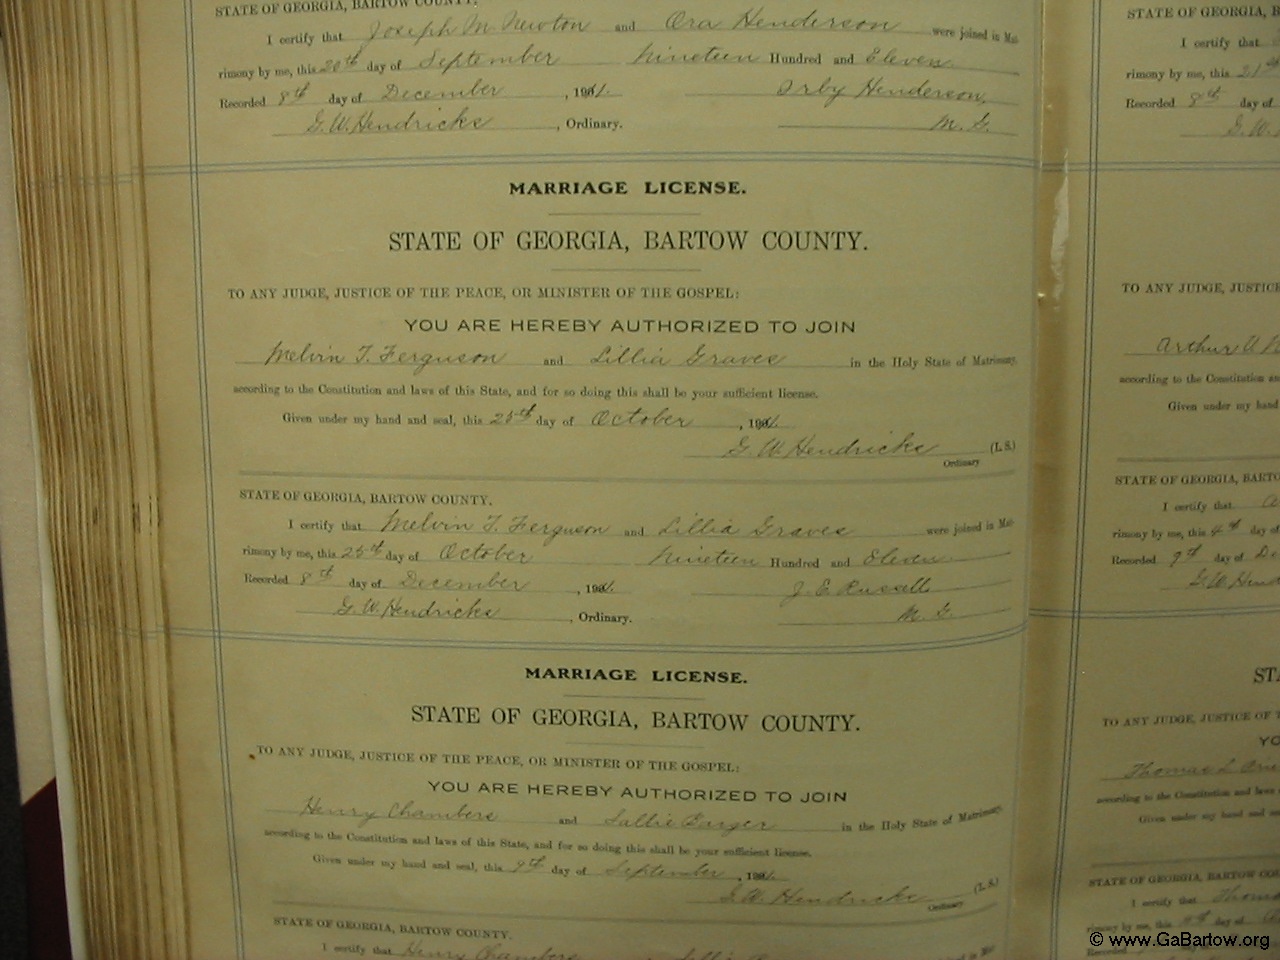 STATE OF GEORGIA, BARTOW COUNTY.
I certify that Joseph M. Newton and Ora Henderson were joined in Mat-
rimony by me, this 20th day of September Nineteen Hundred and Eleven
Recorded 8th day of December, 1911. Orby Henderson,
G. W. Hendricks, Ordinary. M. G.
MARRIAGE LICENSE.
STATE OF GEORGIA, BARTOW COUNTY.
TO ANY JUDGE, JUSTICE OF THE PEACE, OR MINISTER OF THE GOSPEL:
YOU ARE HEREBY AUTHORIZED TO JOIN
Melvin T. Ferguson and Lillia Graves in the Holy State of Matrimony,
according to the Constitution and laws of this State, and for so doing this shall be your sufficient license.
Given under my hand and seal, this 25th day of October, 1911.
G. W. Hendricks (L. S.)
Ordinary
STATE OF GEORGIA, BARTOW COUNTY.
I certify that Melvin T. Ferguson and Lillia Graves were joined in Mat-
rimony by me, this 25th day of October Nineteen Hundred and Eleven
Recorded 8th day of December, 1911. J. E. Russell
G. W. Hendricks, Ordinary. M. G.
MARRIAGE LICENSE.
STATE OF GEORGIA, BARTOW COUNTY.
TO ANY JUDGE, JUSTICE OF THE PEACE, OR MINISTER OF THE GOSPEL:
YOU ARE HEREBY AUTHORIZED TO JOIN
Henry Chambers and Sallie in the Holy State of Matrimony,
according to the Constitution and laws of this State, and for so doing this shall be your sufficient license.
Given under my hand and seal, this 9th day of September, 1911.
G. W. Hendricks (L. S.)
Ordinary
STATE OF GEORGIA, BARTOW COUNTY.
I certify that Henry Chambers
STATE OF GEORGIA, B
I certify that
rimony by me, this 21st
Recorded 8th day of
G. W.
TO ANY JUDGE, JUSTICE
Arthur
according to the Constitution an
Given under my hand
STATE OF GEORGIA, BARTO
I certify that
rimony by me, this 4th day of
Recorded 9th day of De
G. W. Hend
STA
TO ANY JUDGE, JUSTICE OF T
YO
Thomas L.
according to the Constitution and laws
Given under my hand and se
STATE OF GEORGIA, BARTOW CO
I certify that Thomas
rimony by me, this day of
Recorded day of
© www.GaBartow.org